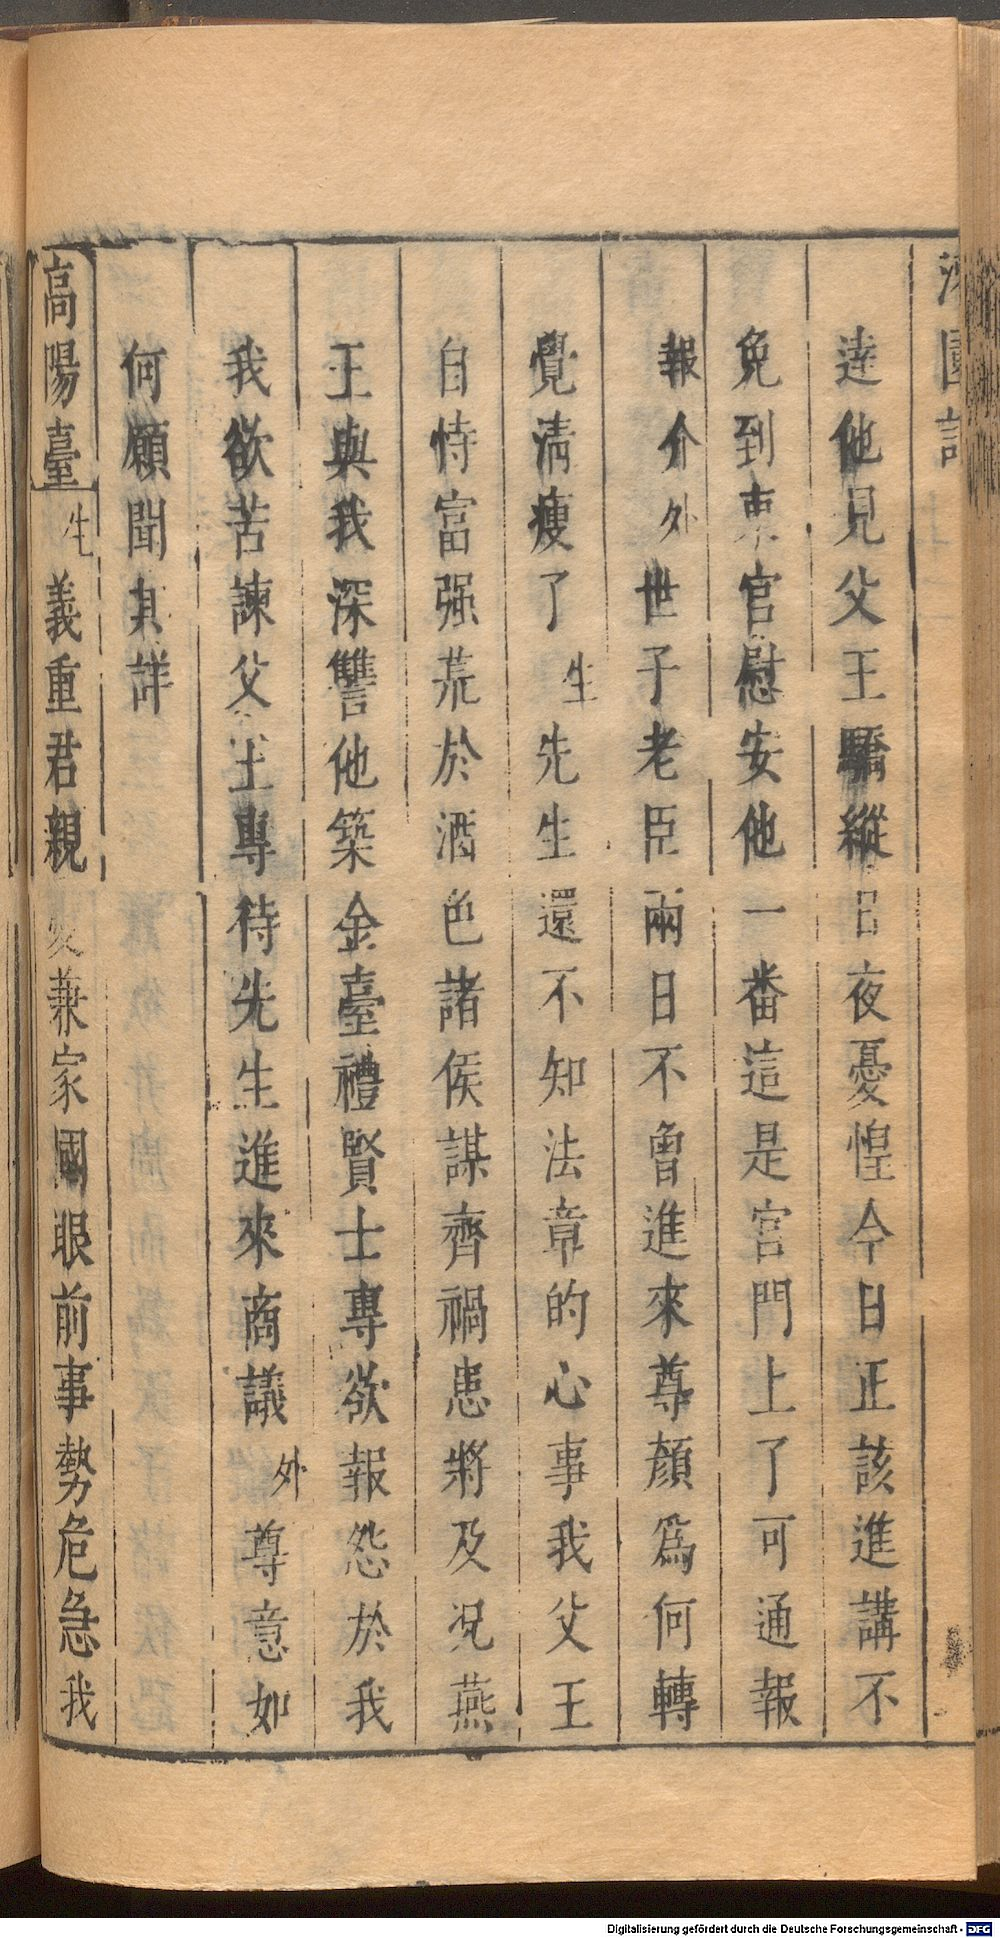 逹他見父王驕縱日夜憂惶今日正該進講不
免到東宫慰安他一番這是宫門上了可通報
報介外世子老臣兩日不曾進來尊顔爲何轉
覺淸瘦了生先生還不知法章的心事我父王
自恃富强荒於酒色諸侯謀齊禍患將及况燕
王與我深讐他築金臺禮賢士專欲報怨於我
我欲苦諫父王專待先生進來商議外尊意如
何願聞其詳
高陽臺生義重君親愛兼家國眼前事勢危急我
Digitalisierung gefördert durch die Deutsche Forschungsgemeinschaft - DFG